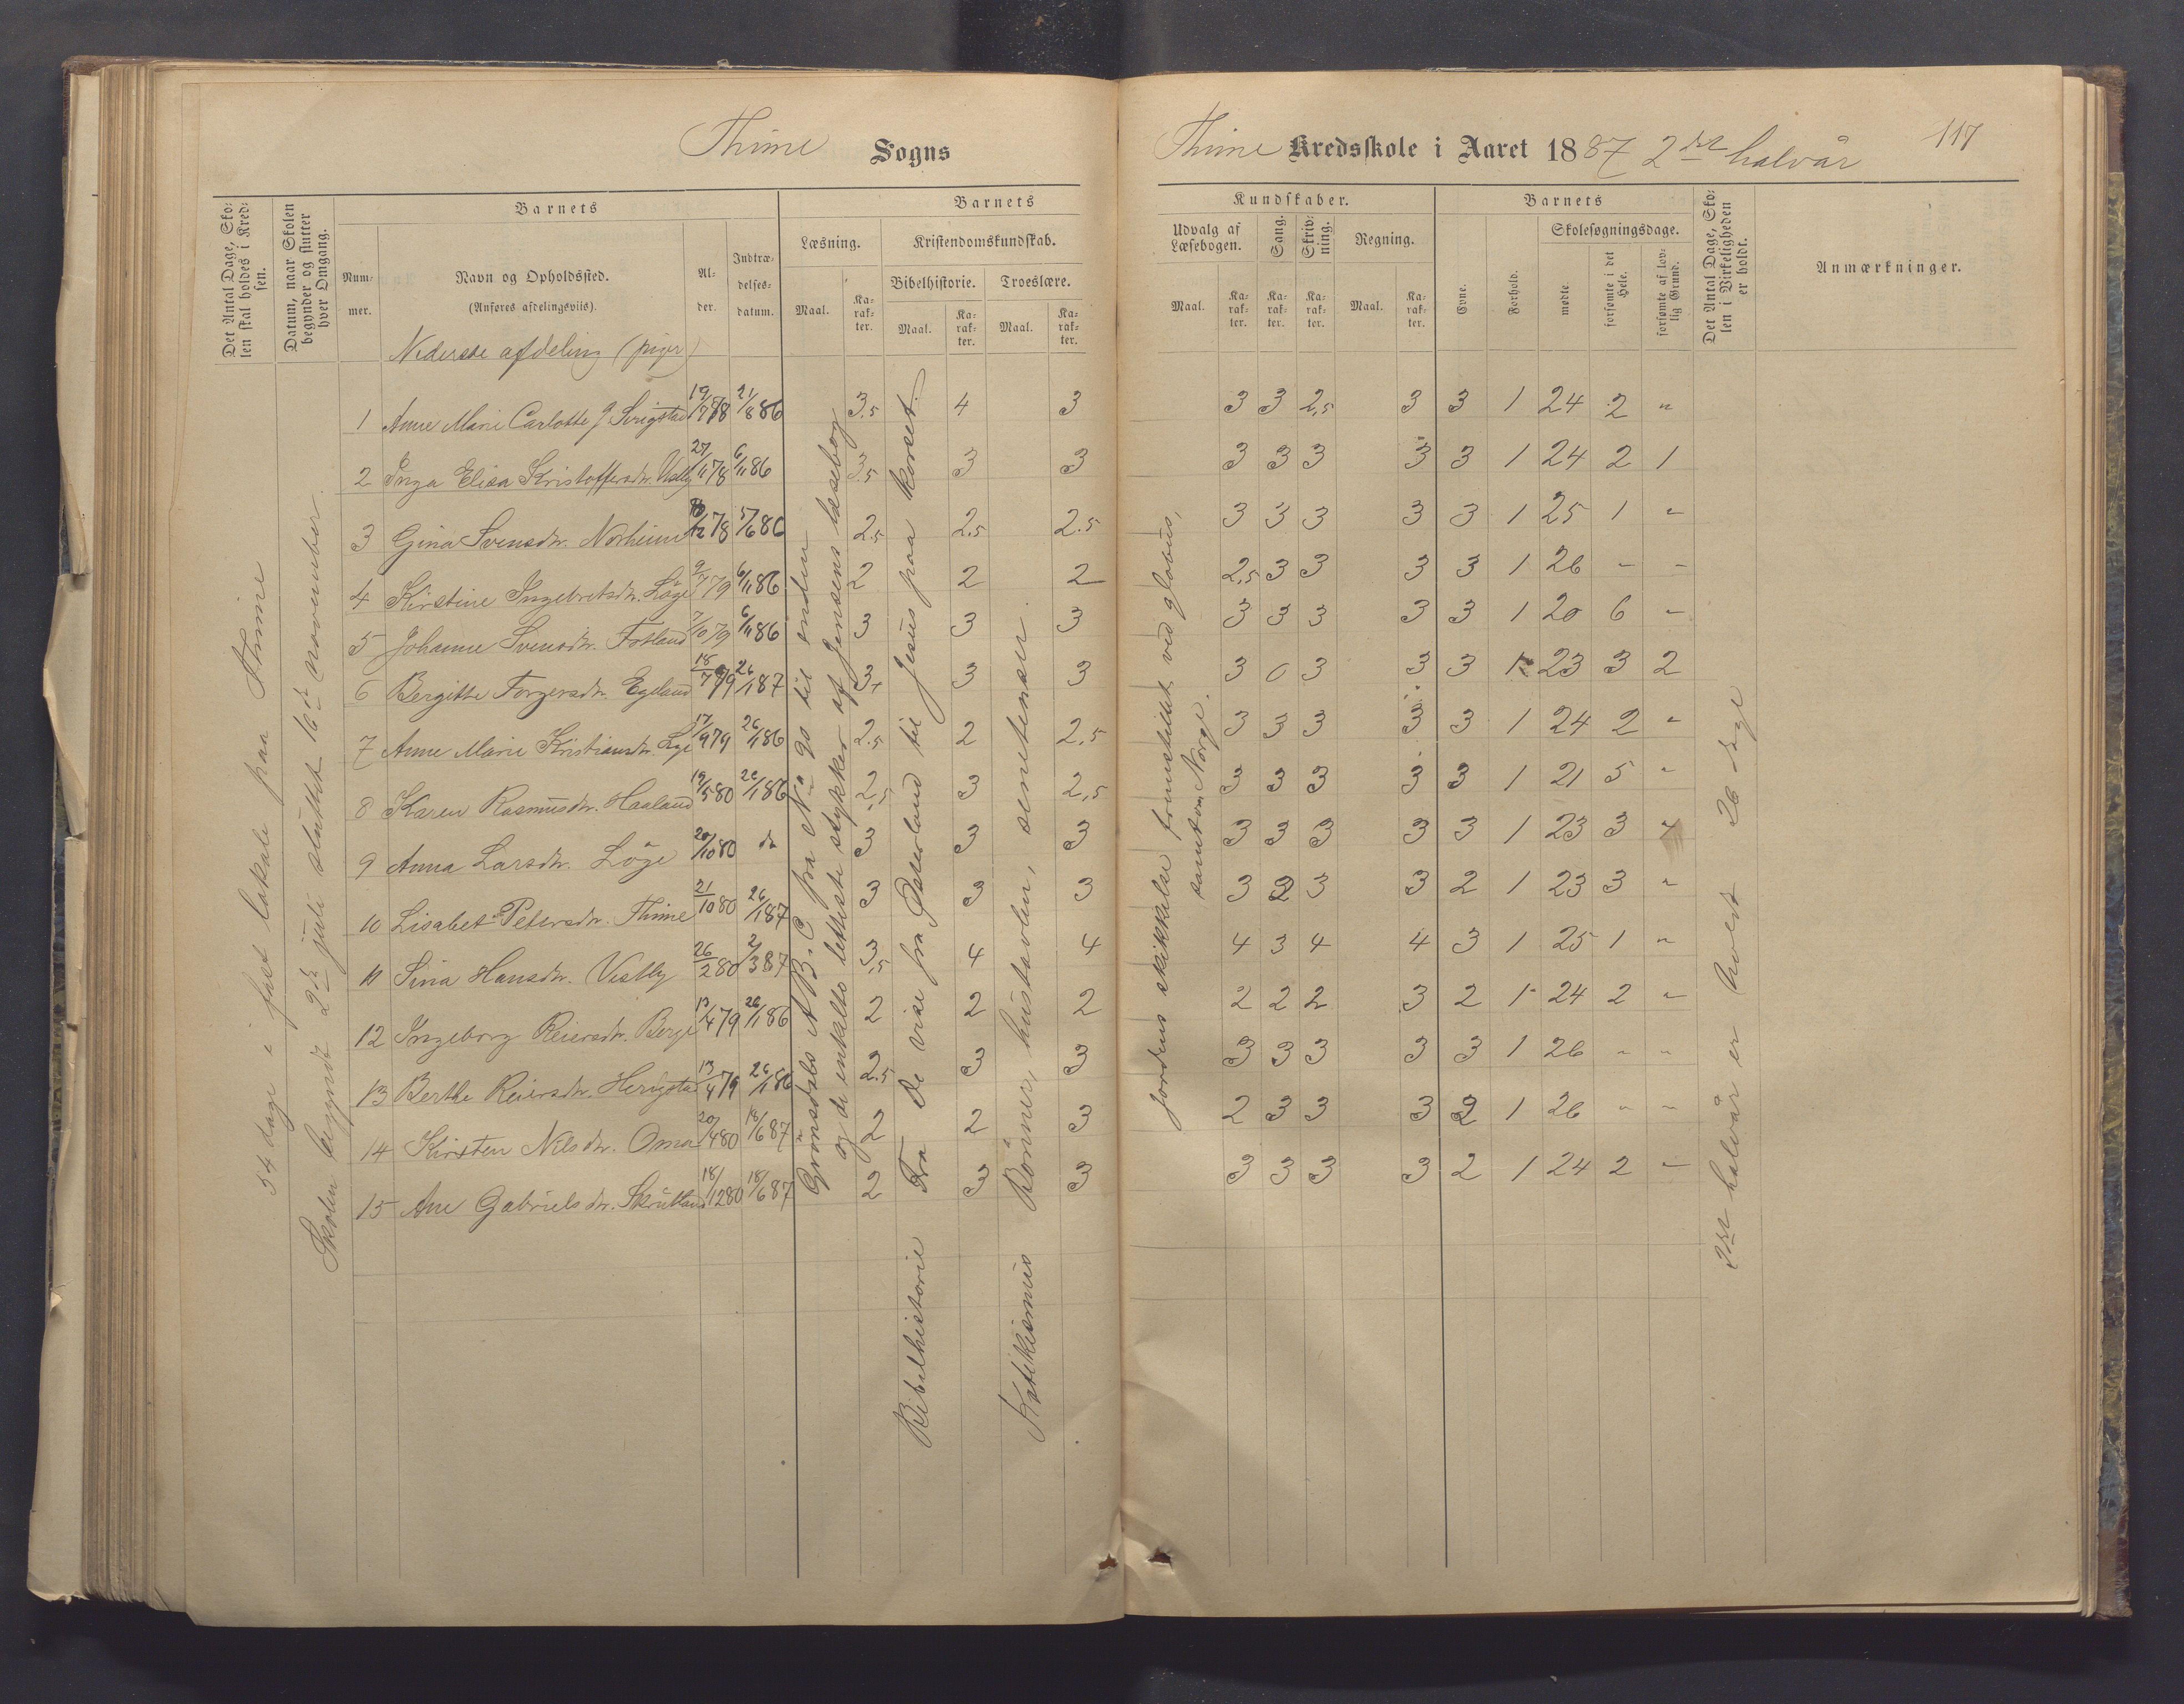 Thime Sogns
Thime Kredsskole i Aaret 1887 2det halvår
117
Det Antal Dage, Skolen skal holdes i Kredsen.
Datum, naar Skolen begynder og slutter hver Omgang.
Barnets
Nummer.
Navn og Opholdssted.
(Anføres afdelingsviis).
Alder.
Indtrædelsesdatum.
Barnets
Læsning.
Maal.
Karakter.
Kristendomskundskab.
Bibelhistorie.
Maal.
Karakter.
Troeslære.
Maal.
Karakter.
Kundskaber.
Udvalg af Læsebogen.
Maal.
Karakter.
Sang.
Karakter.
Skrivning.
Karakter.
Regning.
Maal.
Karakter.
Barnets
Evne.
Forhold.
Skolesøgningsdage.
mødte
forsømte i det Hele.
forsømte af lovlig Grund.
Det Antal Dage, Skolen i Virkeligheden er holdt.
Anmærkninger.
Nederste afdeling (piger)
1 Anne Marie Carlotte J. 19/7 78 21/8 86 3.5 4 3 3 3 2,5 3 3 1 24 2 "
2 Inga Elisa Kristoffersdtr. Vestly 27/11 78 6/11 86 3.5 3 3 3 3 3 3 3 1 24 2 1
3 Gina Svensdtr. Norheim 78 5/6 86 2.5 2.5 2.5 3 3 3 3 3 1 25 1 "
4 Kirstine Ingebretsdtr. Löge 9/7 79 6/11 86 2 2 2 2,5 3 3 3 3 1 26 - -
5 Johanne Svensdtr. Fotland 7/10 79 6/11 86 3 3 3 3 3 3 3 3 1 20 6 "
6 Bergitte Torgersdtr. Egeland 18/7 79 26/1 87 3+ 3 3 3 0 3 3 3 1 23 3 2
7 Anne Marie Kristiansdtr. Lye 17/9 79 26/1 86 2.5 2 2,5 3 3 3 3 3 1 24 2 "
8 Karen Rasmusdtr. Haaland 19/5 80 26/1 86 2,5 3 2,5 3 3 3 3 3 1 21 5 "
9 Anna Larsdtr. Löge 20/10 80 do 3 3 3 3 3 3 3 3 1 23 3 "
10 Lisabet Petersdtr. Thime 21/10 80 26/1 87 3 3 3 3 2 3 3 2 1 23 3 "
11 Sina Hansdtr. Vestly 26/2 80 2/3 87 3,5 4 4 4 3 4 4 3 1 25 1 "
12 Ingeborg Reiersdtr. Berge 13/4 79 26/1 86 2 2 2 2 2 2 3 2 1 24 2 "
13 Berthe Reiersdtr. Herigstad 13/4 79 26/1 86 2.5 3 3 3 3 3 3 3 1 26 " "
14 Kirsten Nilsdtr. Oma 20/4 80 18/6 87 2 2 3 2 3 3 3 2 1 26 " "
15 Ane Gabrielsdtr. Skrutland 18/12 80 18/6 87 2 3 3 3 3 3 3 2 1 24 2 "
54 dage i fast lokale paa Thime
Skolen begyndt 2den juli sluttet 16de november.
Grönsdals A.B.C. fra No 90 til enden
og de enkelte letteste stykker af Jensens læsebog
Bibelhistorie Fra De vise fra Østerland til Jesus paa korset.
Katikismus Bönner, hustavlen, senetenser.
Jordens skikkelse fremstillet ved globus,
samt om Norge.
2det halvår er holdt 26 dage